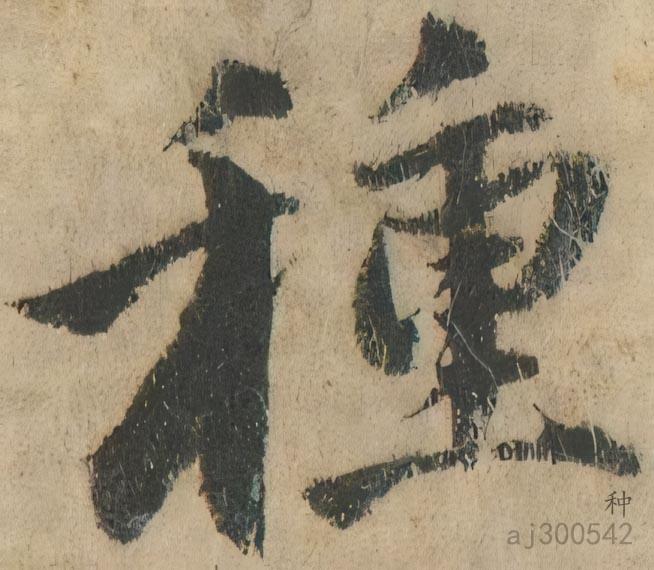 種
种
aj300542